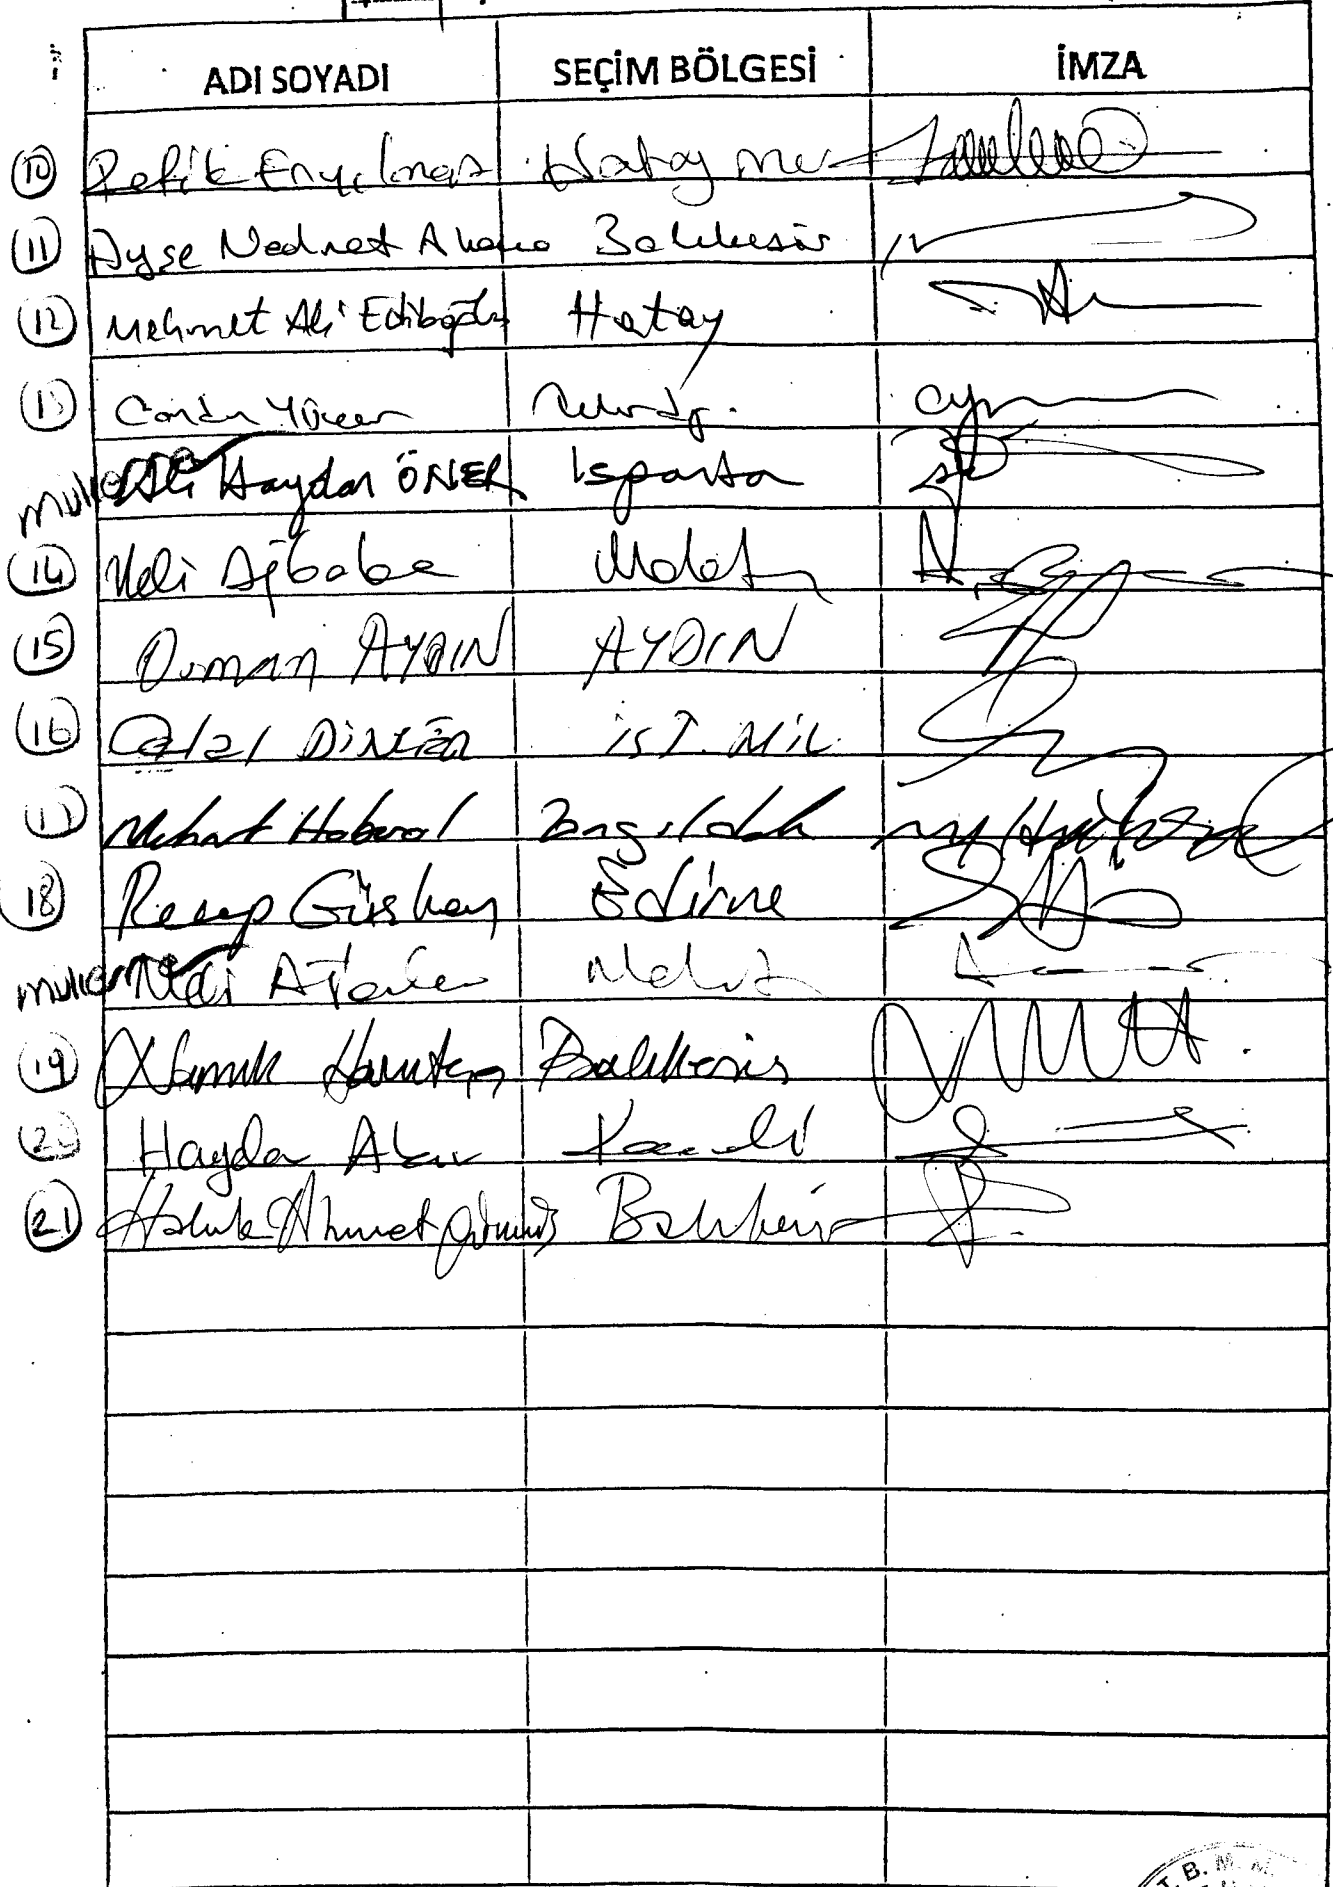 ADI SOYADI SEÇİM BÖLGESİ İMZA
10 Refik Eryılmaz Hatay
11 Ayşe Nedret Akova Balıkesir
12 Mehmet Ali Ediboğlu Hatay
13 Candan Yüceer Tekirdağ.
Ali Haydar ÖNER Isparta
14 Veli Ağbaba Malatya
15 Osman AYDIN AYDIN
16 Celal DİNÇER İST. MİL.
17 Mehmet Haberal Zonguldak
18 Recep Gürkan Edirne
Veli Ağbaba Malatya
19 Namık Havutça Balıkesir
20 Haydar Akar Kocaeli
21 Haluk Ahmet Gümüş Balıkesir
T.B.M.M.